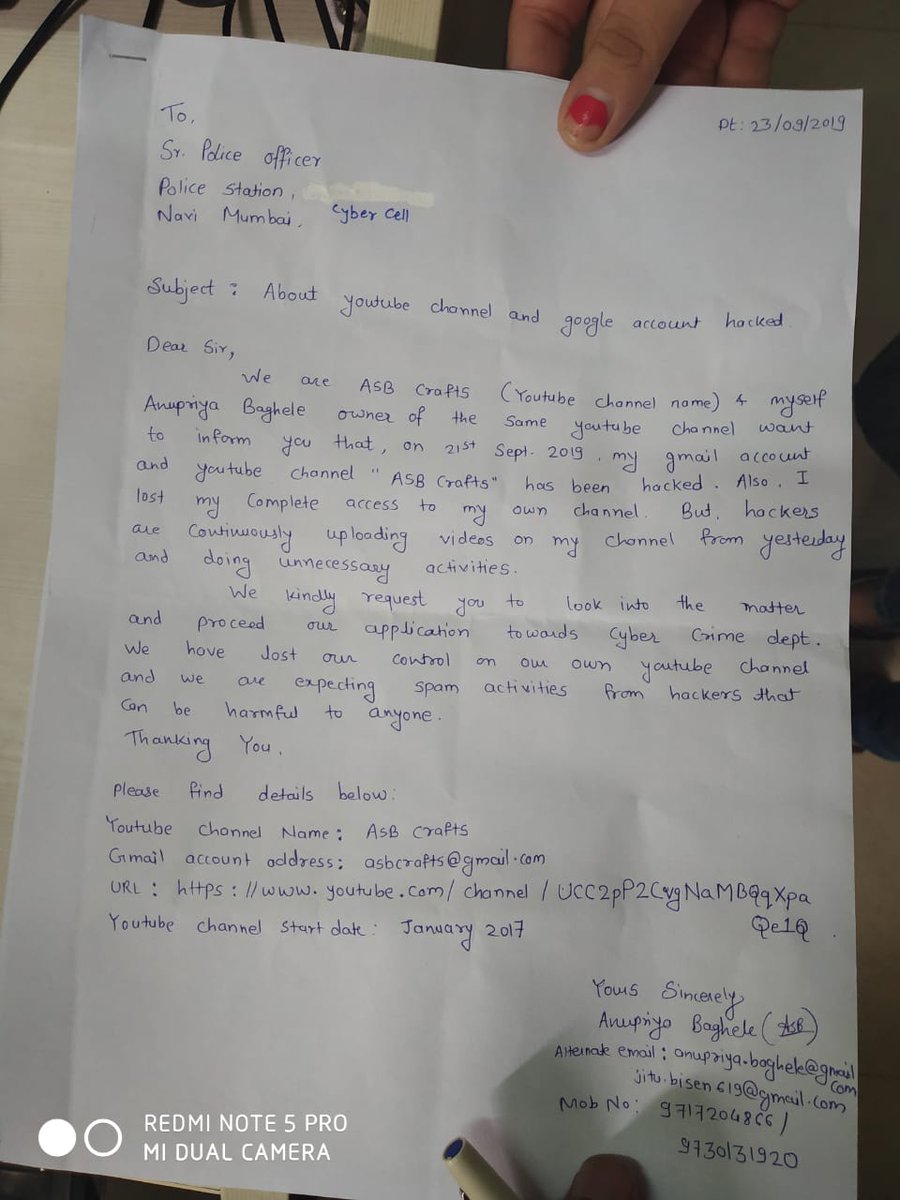 To,
Dt: 23/09/2019
Sr. Police officer
Police Station,
Navi Mumbai, Cyber Cell
Subject : About youtube channel and google account hacked.
Dear Sir,
We are ASB Crafts (Youtube channel name) & myself
Anupriya Baghele owner of the same youtube channel want
to inform you that, on 21st Sept. 2019, my gmail account
and youtube channel "ASB Crafts" has been hacked. Also, I
lost my complete access to my own channel. But, hackers
are continuously uploading videos on my channel from yesterday
and doing unnecessary activities.
We kindly request you to look into the matter
and proceed our application towards Cyber Crime dept.
We have lost our control on our own youtube channel
and we are expecting spam activities from hackers that
can be harmful to anyone.
Thanking You.
Please find details below:
Youtube channel Name : ASB Crafts
Gmail account address: asbcrafts@gmail.com
URL : https://www.youtube.com/channel/UCC2pP2CvgNaMBQqXpa
Qe1Q.
Youtube channel start date: January 2017
Yours Sincerely,
Anupriya Baghele (ASB)
Alternate email: anupriya.baghele@gmail
com
jitu.bisen619@gmail.com
Mob No: 9717204866/
9730131920
REDMI NOTE 5 PRO
MI DUAL CAMERA